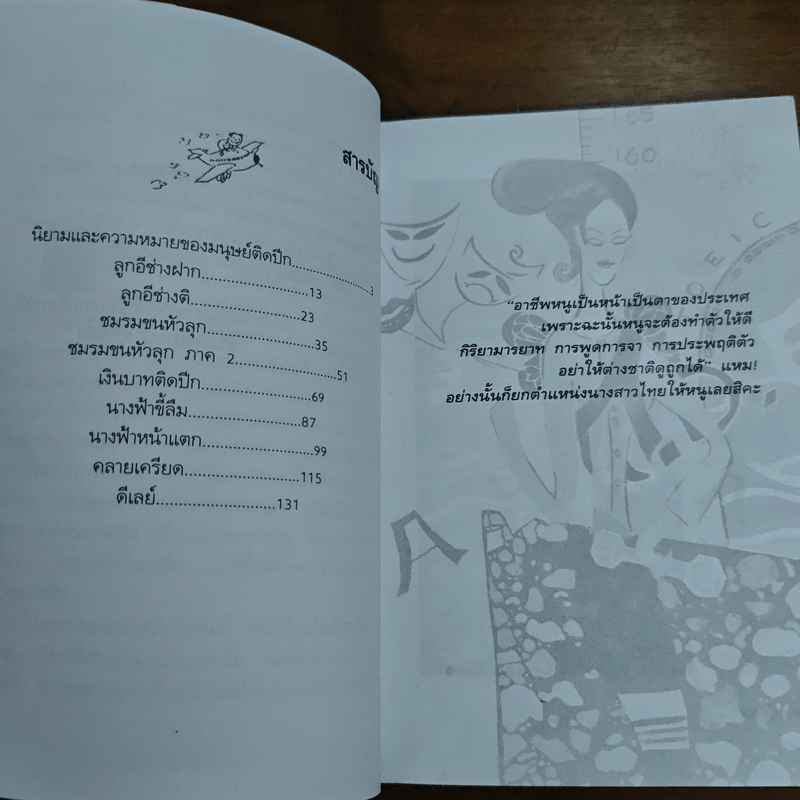 สารบัญ
นิยามและความหมายของมนุษย์ติดปีก....................3
ลูกอีช่างฝาก......................13
ลูกอีช่างติ......................23
ชมรมขนหัวลุก......................35
ชมรมขนหัวลุก ภาค 2....................51
เงินบาทติดปีก......................69
นางฟ้าขี้ลืม.......................87
นางฟ้าหน้าแตก......................99
คลายเครียด.......................115
ดีเลย์........................131
165
160
OEIC
"อาชีพหนูเป็นหน้าเป็นตาของประเทศ
เพราะฉะนั้นหนูจะต้องทำตัวให้ดี
กิริยามารยาท การพูดการจา การประพฤติตัว
อย่าให้ต่างชาติดูถูกได้" แหม!
อย่างนั้นก็ยกตำแหน่งนางสาวไทยให้หนูเลยสิคะ